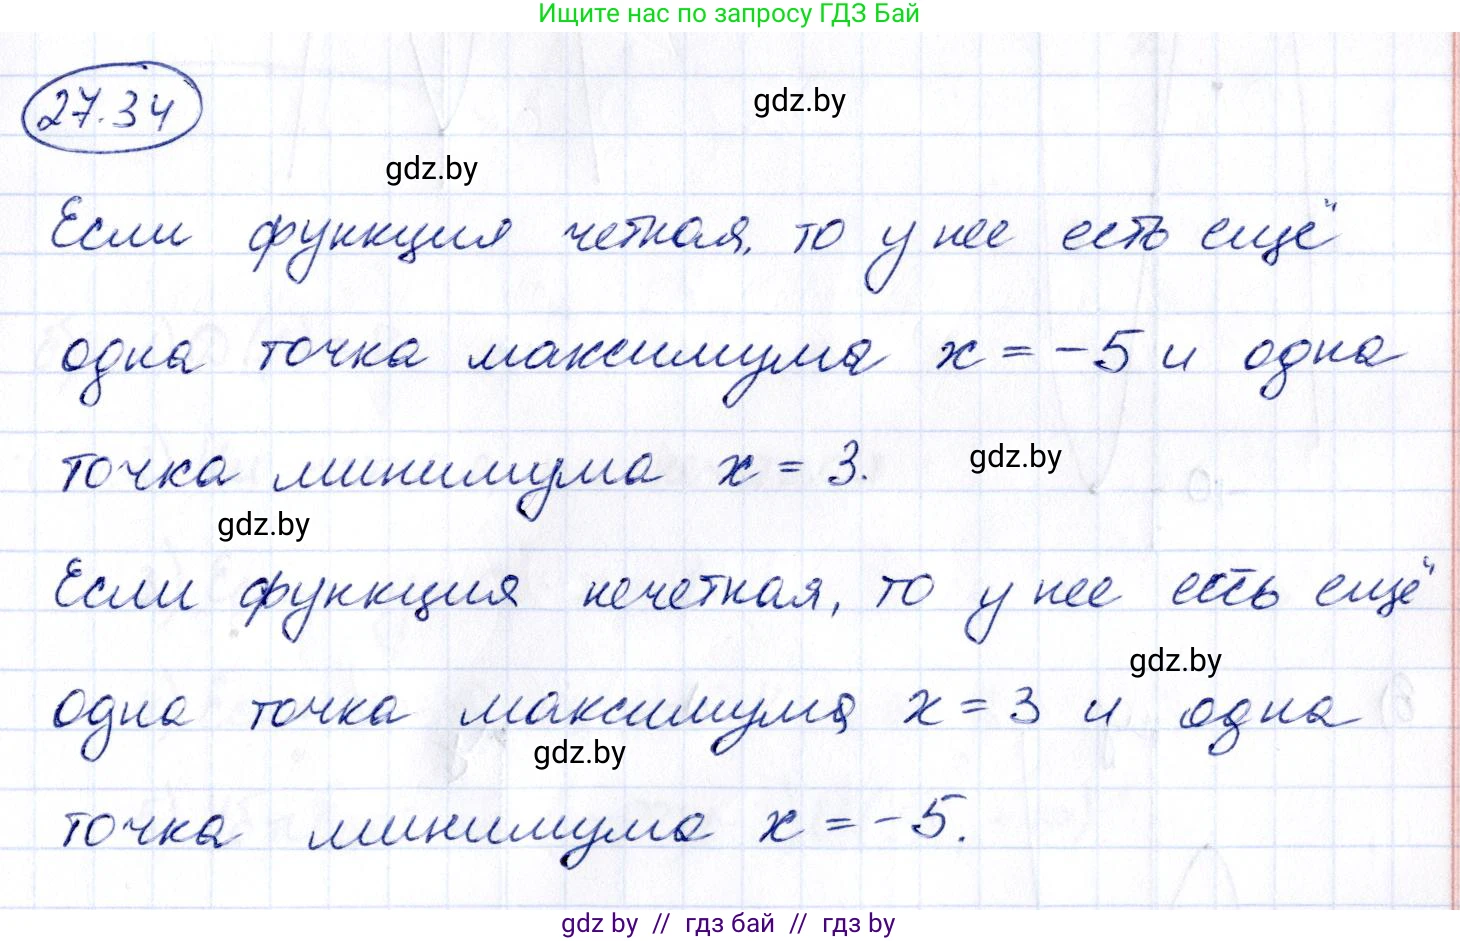 Ищите нас по запросу ГДЗ Бай
27.34
gdz.by
gdz.by
Если функция четная, то у нее есть ещё
одна точка максимума x = -5 и одна
точка минимума x = 3.
gdz.by
gdz.by
Если функция нечетная, то у нее есть ещё
gdz.by
одна точка максимума x = 3 и одна
gdz.by
точка минимума x = -5.
gdz by // гдз бай // гдз by